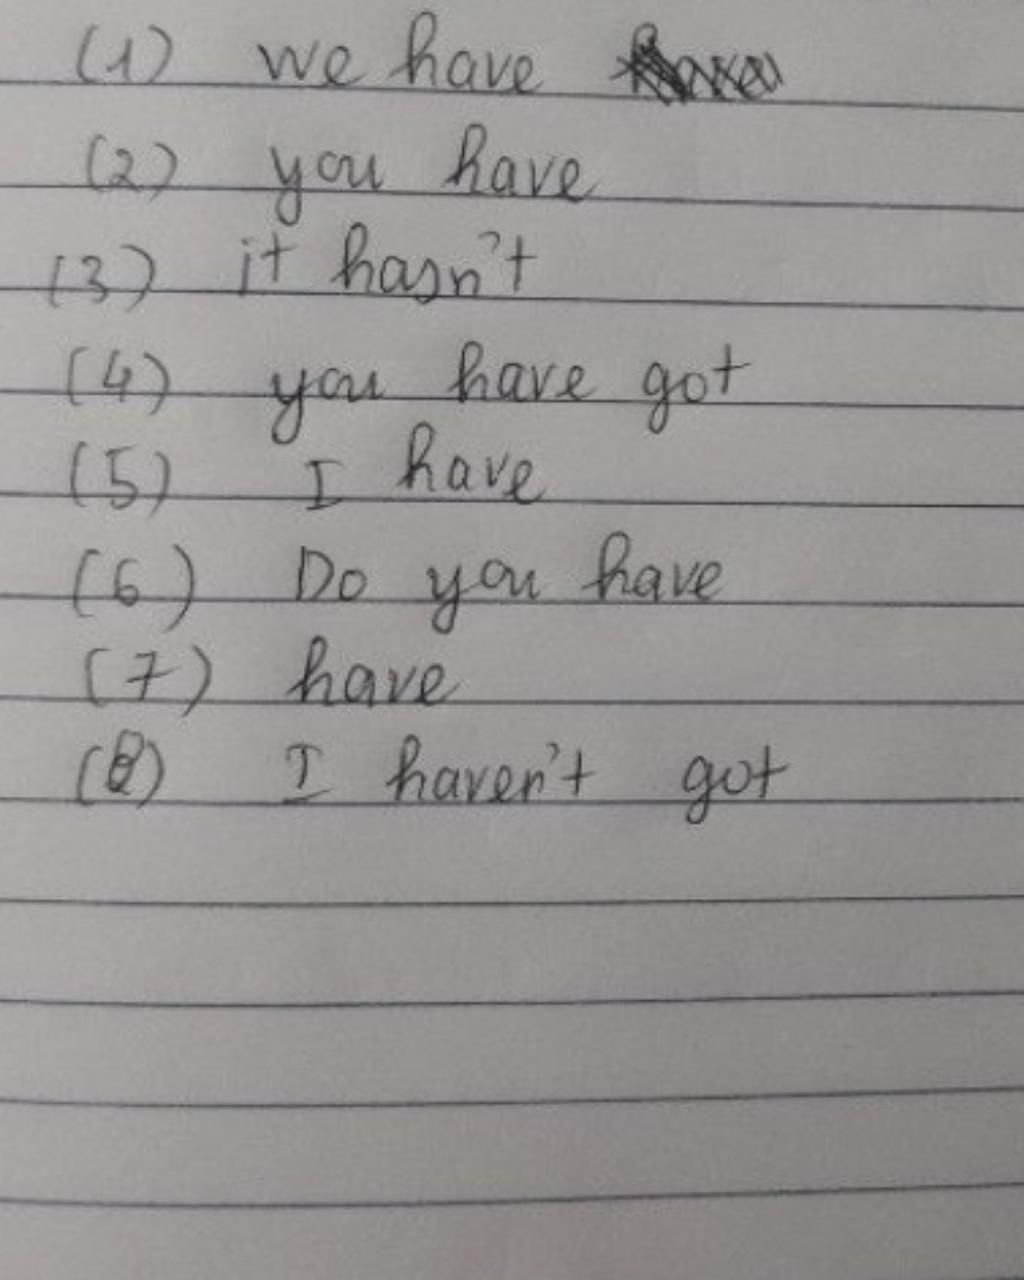 (1) we have
(2) you have
(3) it hasn't
(4) you have got
(5) I have
(6) Do you have
(7) have
(8) I haven't got